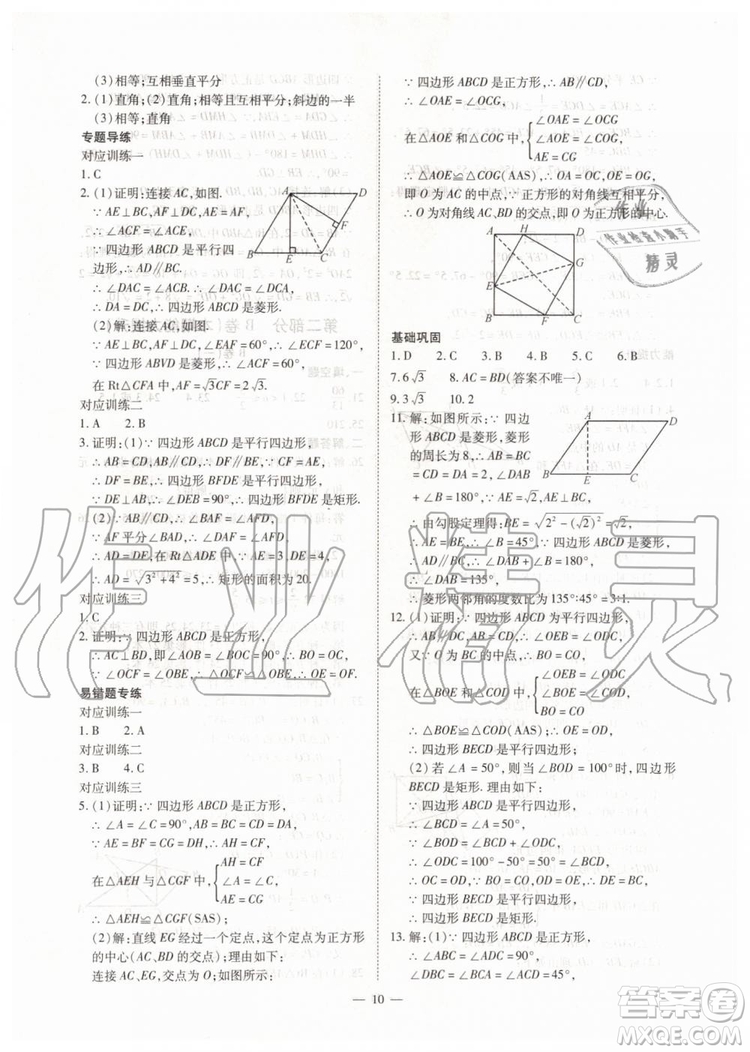 (3)相等;互相垂直平分
2.(1)直角;(2)直角;相等且互相平分;斜边的一半
(3)相等;直角
专题导练
对应训练一
1.C
2.(1)证明:连接AC,如图.
∵AE⊥BC,AF⊥DC,AE=AF,
∴∠ACF=∠ACE,
∵四边形ABCD是平行四边
形,∴AD∥BC.
∴∠DAC=∠ACB.
∴∠DAC=∠DCA,∴DA=DC,
∴四边形ABCD是菱形.
(2)解:连接AC,如图.
∵四边形ABCD是菱形,∠BAF=90°,
∴四边形ABVD是菱形,
在Rt△CFA中,AF=√3CF=2√3.
对应训练二
1.A 2.B
3.证明:(1)∵四边形ABCD是平行四边形,
∴AB∥CD,∴BE∥DF,
∵DF=BE,∴四边形BFDE是平行四边形,
∵DE⊥AB,∴∠DEB=90°,∴四边形BFDE是矩形.
(2)∵AB∥CD,∴∠BAF=∠AFD,
∵AF平分∠DAB,∴∠DAF=∠AFD,
∴AD=DF,在Rt△ADE中,∵AE=3,DE=4,
∴AD=√3²+4²=5,∴矩形的面积为20.
对应训练三
1.C
2.证明:∵四边形ABCD是正方形,
∴AC⊥BD,∴∠AOF=∠BOE=90°,
∵∠OCF=∠OBE,∴△OCF≌△OBE,∴OE=OF.
易错题专练
对应训练一
1.B 2.A
对应训练二
3.B 4.C
对应训练三
5.(1)证明:∵四边形ABCD是正方形,
∴∠A=∠C=90°,AB=BC=CD=DA,
∵AE=BF=CG=DH,∴AH=CF,
在△AEH与△CGF中,
AH=CF
∠A=∠C
AE=CG
∴△AEH≌△CGF(SAS);
(2)解:直线EG经过一个定点,这个定点为正方形
的中心(AC、BD的交点);理由如下:
连接AC,EG,交点为O;如图所示:
∵四边形ABCD是正方形,∴AB∥CD,
∴∠OAE=∠OCG,
在△AOE和△COG中,
∠OAE=∠OCG
∠AOE=∠COG
AE=CG
∴△AOE≌△COG(AAS),∴OA=OC,OE=OG,
即O为AC的中点,∵正方形的对角线互相平分,
∴O为对角线AC、BD的交点,即O为正方形的中心.
基础巩固
1.D 2.C 3.C 4.D 5.B 6.D
7.6√3 8.AC=BD(答案不唯一)
9.3√3 10.2
11.解:如图所示:∵四边
形ABCD是菱形,菱形
的周长为8,∴AB=BC
=CD=DA=2,∠DAB
+∠B=180°,∵AE=√2,AE⊥BC,
∴由勾股定理得:BE=√2²-(√2)²=√2,
∴AE=BE,∴∠B=45°,∴∠DAB+∠B=180°,
∴∠DAB=135°,
∴菱形两邻角的度数比为135°:45°=3:1.
12.(1)证明:∵四边形ABCD为平行四边形,
∴AB∥DC,AB=CD,∴∠OEB=∠ODC,
又∵O为BC的中点,∴BO=CO,
在△BOE和△COD中,
∠OEB=∠ODC
∠BOE=∠COD
BO=CO
∴△BOE≌△COD(AAS);∴OE=OD,
∴四边形BECD是平行四边形;
(2)若∠A=50°,则当∠BOD=100°时,四边形
BECD是矩形.理由如下:
∵四边形ABCD是平行四边形,
∴∠BCD=∠A=50°,
∵∠BOD=∠BCD+∠ODC,
∴∠ODC=100°-50°=50°=∠BCD,
∴OC=OD,∵BO=CO,OD=OE,
∴DE=BC,∵四边形BECD是平行四边形,
∴四边形BECD是矩形.
13.解:(1)∵四边形ABCD是正方形,
∠DBC=∠BCA=∠ACD=45°,
— 10 —
A D F B E C
A H D G E B F C
A D B E C
作业
作业检查小助手
精灵
作业精灵
答案圈
MXQE.COM